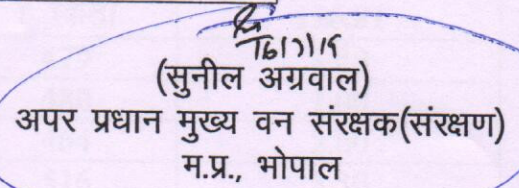 (सुनील अग्रवाल)
अपर प्रधान मुख्य वन संरक्षक(संरक्षण)
म.प्र., भोपाल